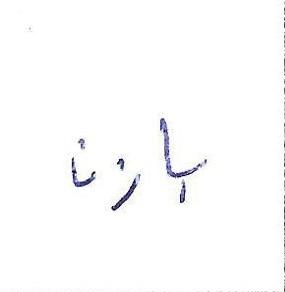 بازنا